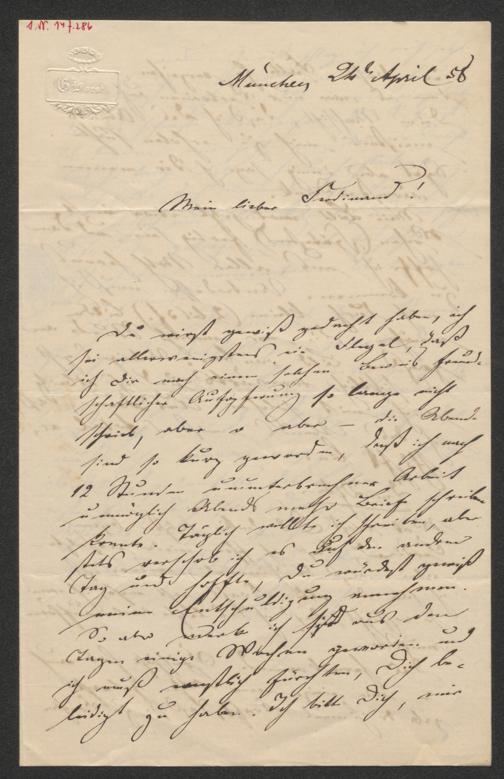 I. N. 147.286
München 24t April 58
Mein lieber Ferdinand!
Du wirst gewiß gedacht haben, ich
sei allerwenigstens ein Flegel, daß
ich Dir nach einem solchen Beweis freund-
schaftlicher Aufopferung so lange nicht
schrieb, aber o aber – die Abende
sind so kurz geworden, daß ich nach
12 Stunden ununterbrochener Arbeit
unmöglich Abends mehr Briefe schreiben
konnte. Täglich wollte ich schreiben, aber
stets verschob ich es auf den andern
Tag und hoffte, Du würdest gewiß
meine Entschuldigung annehmen.
So aber merke ich sind aus den
Tagen einige Wochen geworden und
ich muß ernstlich fürchten, Dich be-
leidigt zu haben. Ich bitte Dich, mir